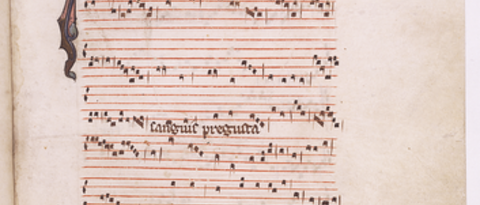 sanguis pregusta